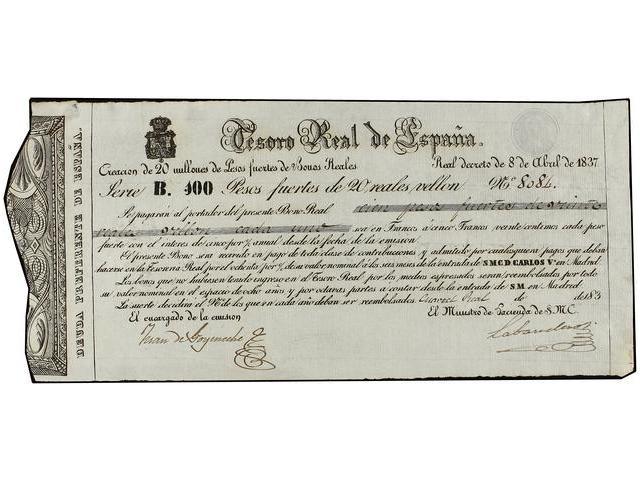 DEUDA PREFERENTE DE ESPAÑA.
Tesoro Real de España.
Creacion de 20 millones de Pesos fuertes de Bonos Reales
Real decreto de 8 de Abril de 1837
Serie B. 100 Pesos fuertes de 20 reales vellon Nº 8084.
Se pagarán al portador del presente Bono Real cien pesos fuertes de veinte
reales vellon cada uno sea en Francos á cinco Francos veinte centimos cada peso
fuerte con el interes de cinco por % anual desde la fecha de la emision
El presente Bono sera recivido en pago de toda clase de contribuciones y admitido por cualesquiera pagos que deban
hacerse en la tesoreria Real por el ochenta por % de su valor nominal á los seis meses de la entrada de S M C D CARLOS Vº en Madrid
Los bonos que no hubiesen tenido ingreso en el Tesoro Real por los medios espresados seran reembolsados por todo
su valor nominal en el espacio de ocho años y por octavas partes á contar desde la entrada de S M en Madrid
La suerte decidira el Nº de los que en cada año deban ser reembolsados Cuartel Real de de 183
El encargado de la emision
El Ministro de Hacienda de S.M.C.
Juan de Goyeneche
Labandero